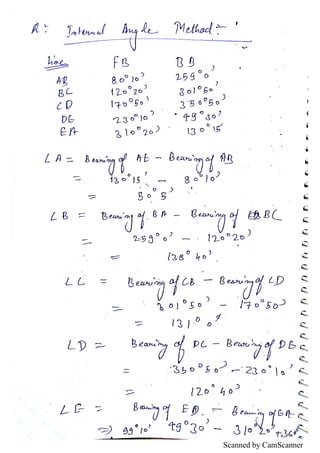 R: Internal Angle Method:-
Line FB BB
AB 80°10' 259°0'
BC 120°20' 301°50'
CD 170°50' 350°50'
DE 230°10' 49°30'
EA 310°20' 130°15'
∠A = Bearing of AE - Bearing of AB
= 130°15' - 80°10'
= 50°5'
∠B = Bearing of BA - Bearing of BC
= 259°0' - 120°20'
= 138°40'
∠C = Bearing of CB - Bearing of CD
= 301°50' - 170°50'
= 131°0'
∠D = Bearing of DC - Bearing of DE
= 350°50' - 230°10'
= 120°40'
∠E = Bearing of ED - Bearing of EA
=> 99°10' 49°30' - 310°20' +360
Scanned by CamScanner